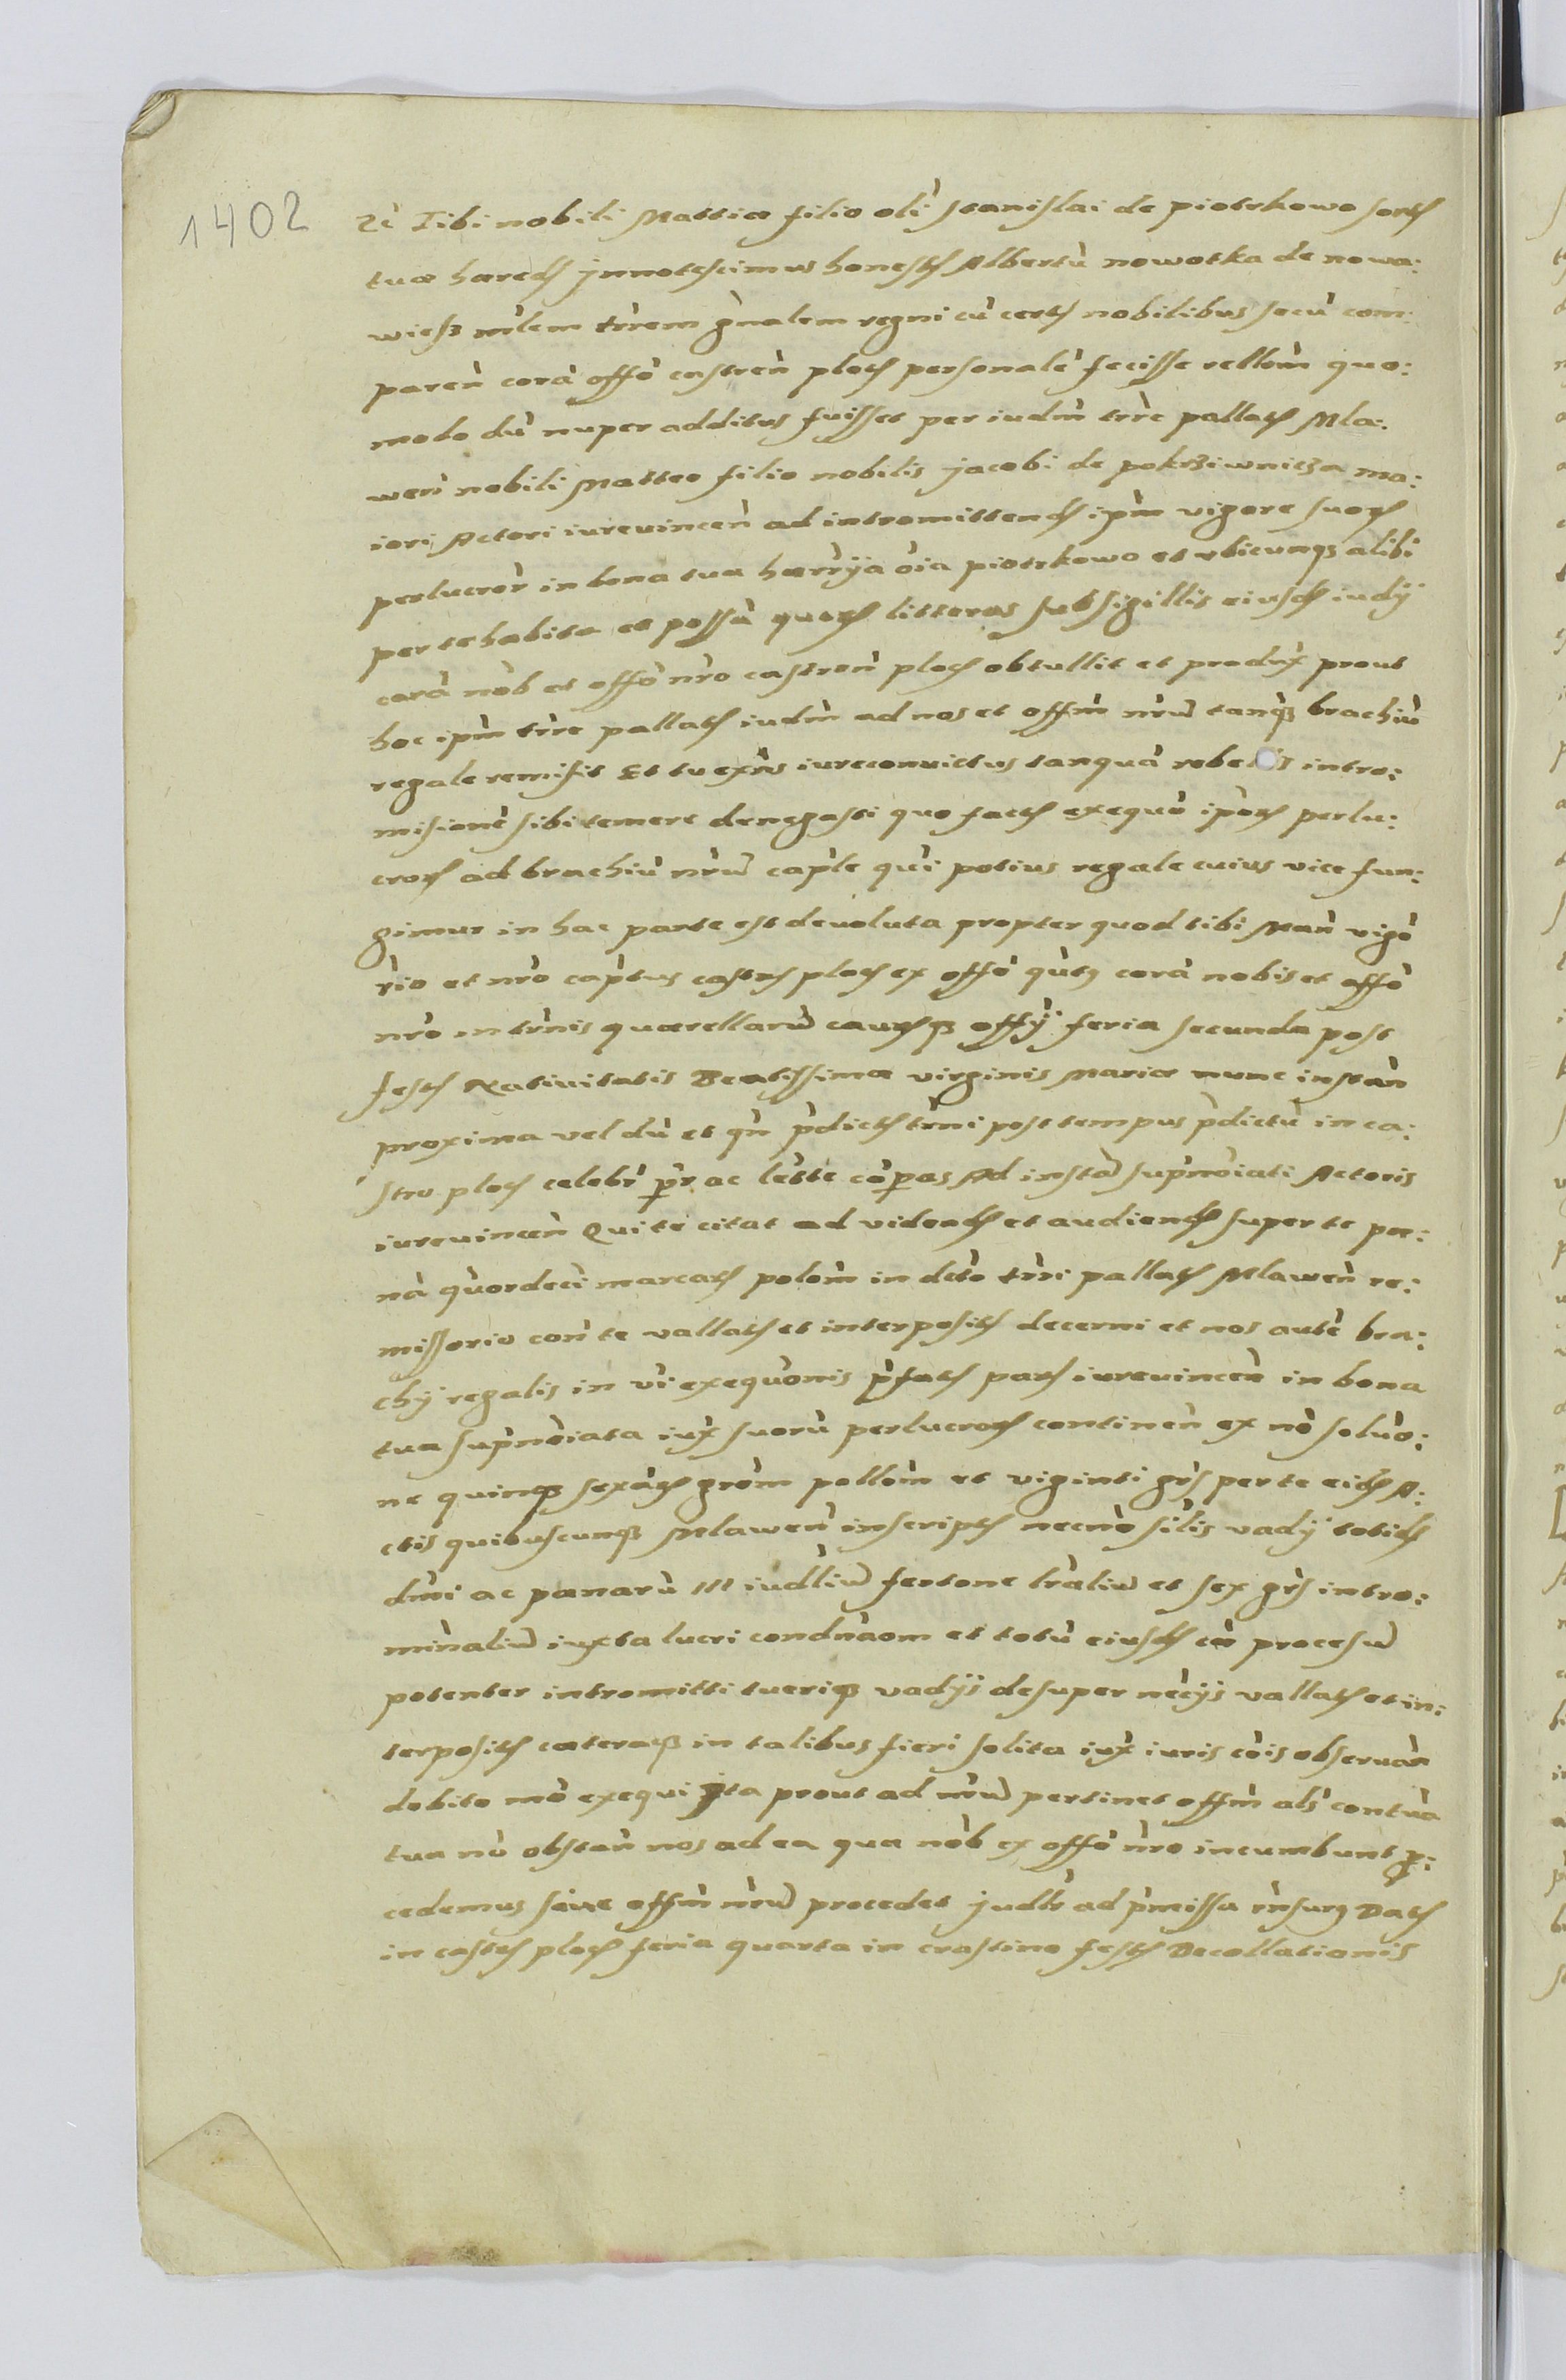 1402
Tibi nobili Mattiæ filio oli Stanislai de piotrkowo sort
tuæ hæred ynnotescimus honest Albertu nowotka de nowa:
wiess mlem trrem gnalem regni cu cert nobilibus secu com:
paren cora offo castren plot personale fecisse rellom quo:
modo du nuper additus fuisset per iudm trre pallat Mla:
wen nobili Matteo filio nobilis jacobi de pokrziwnicza ma:
iori Actori iureuincen ad intromittend ipm vigore suor
perlucror in bona tua hærrya oia piotrkowo et vbicunq alibi
per te habita et possa quor litteras sub sigillis eiusd iudy
cora nob et offo nro castren plot obtullit et produx prout
hoc ipm trre pallat iudm ad nos et offm nru tanq brachiu
regale remisit Et tu exns iureconuictus tanqua rebellis intro:
misione sibi temere denegasti quo fact exequo ipor perlu:
cror ad brachiu nru caple qui potius regale cuius vice fun:
gimur in hac parte est deuoluta propter quod tibi Man vigo
rio et nro captus castr plot ex offo qut cora nobis et offo
nro in trnis quærellaru caurq offy feria secunda post
fest Natiuitatis Beatissimæ virginis Mariæ nunc instan
proxima vel du et qn pdict trni post tempus pdictu in ca:
stro plot celebr pr ac leste copas Ad insta supnoiati Actoris
iureuincen Qui te citat ad vidend et audiend super te pæ:
na quordeci marcar polom in deto trri pallat Mlawen re:
missorio con te vallat et interposit decerni et nos aute bra:
chy regalis in vi exequonis pfat par iureuincen in bona
tua supnoiata iux suoru perlucror continen ex no soluo:
ne quinq sexag grom pollom et viginti grs per te eid A:
ctis quibuscunq Mlawen inscript necno silis vady totid
dmi ac pænaru III iudliu fertone lraliu et sex grs intro:
minaliu iuxta lucri condnaom et totu eiusd ca procesu
potenter intromitti tueriq vadijs desuper necijs vallat et in:
terposit cæteraq in talibus fieri solita iux iuris cois obseruan
debito mo exequi Ita prout ad nru pertinet offm als contua
tua no obstan nos ad ea qua nob ex offo nro incumbunt p:
cedemus siue offm nru procedet judlr ad pmissa rnsur Dat
in castr plot feria quarta in crastino fest Decollationis